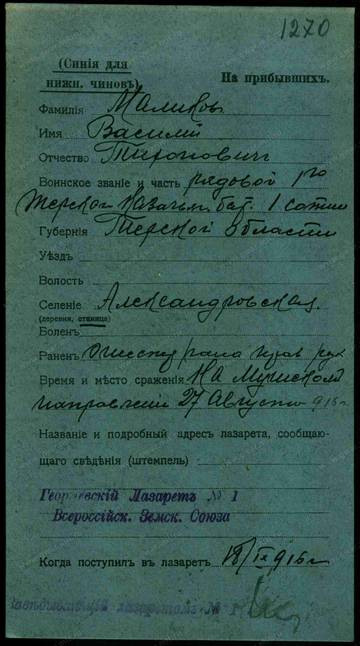 1270
(Синія для
нижн. чиновъ)
На прибывшихъ.
Фамилія Маликовъ
Имя Василій
Отчество Тихоновичъ
Воинское званіе и часть рядовой 1го
Терской Казачьей бат. 1 сотни
Губернія Терской области
Уѣздъ
Волость
Селеніе Александровская.
(деревня, станица)
Боленъ
Раненъ рана прав рук
Время и мѣсто сраженія На Мушском
направленіи 27 Августа 916 г
Названіе и подробный адресъ лазарета, сообщаю-
щаго свѣдѣнія (штемпель)
Георгіевскій Лазаретъ № 1
Всероссійск. Земск. Союза
Когда поступилъ въ лазаретъ 18/IX 916 г
Завѣдывающій лазаретомъ № 1